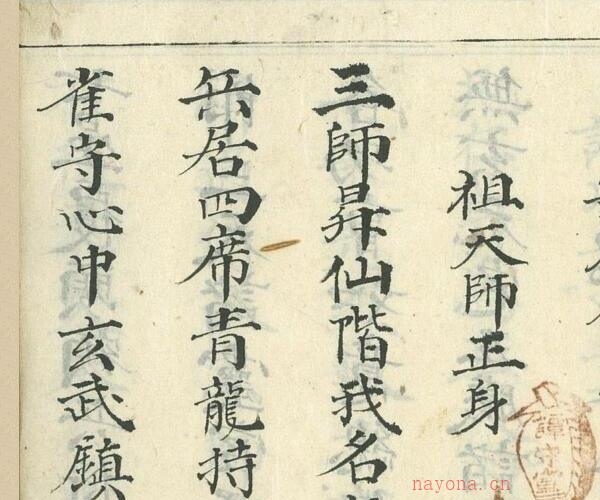 祖天師正身
三師昇仙階我名
兵居四席青龍持
雀守心中玄武鎮
nayona.cn